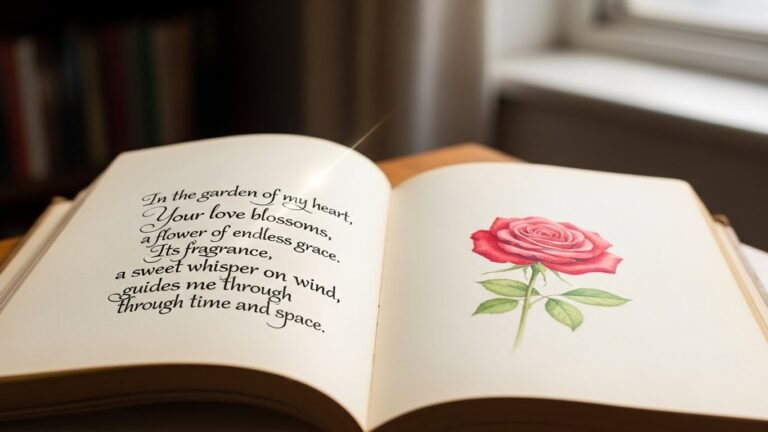 In the garden of my heart,
Your love blossoms,
a flower of endless grace.
Its fragrance,
a sweet whisper on wind,
guides me through
through time and space.